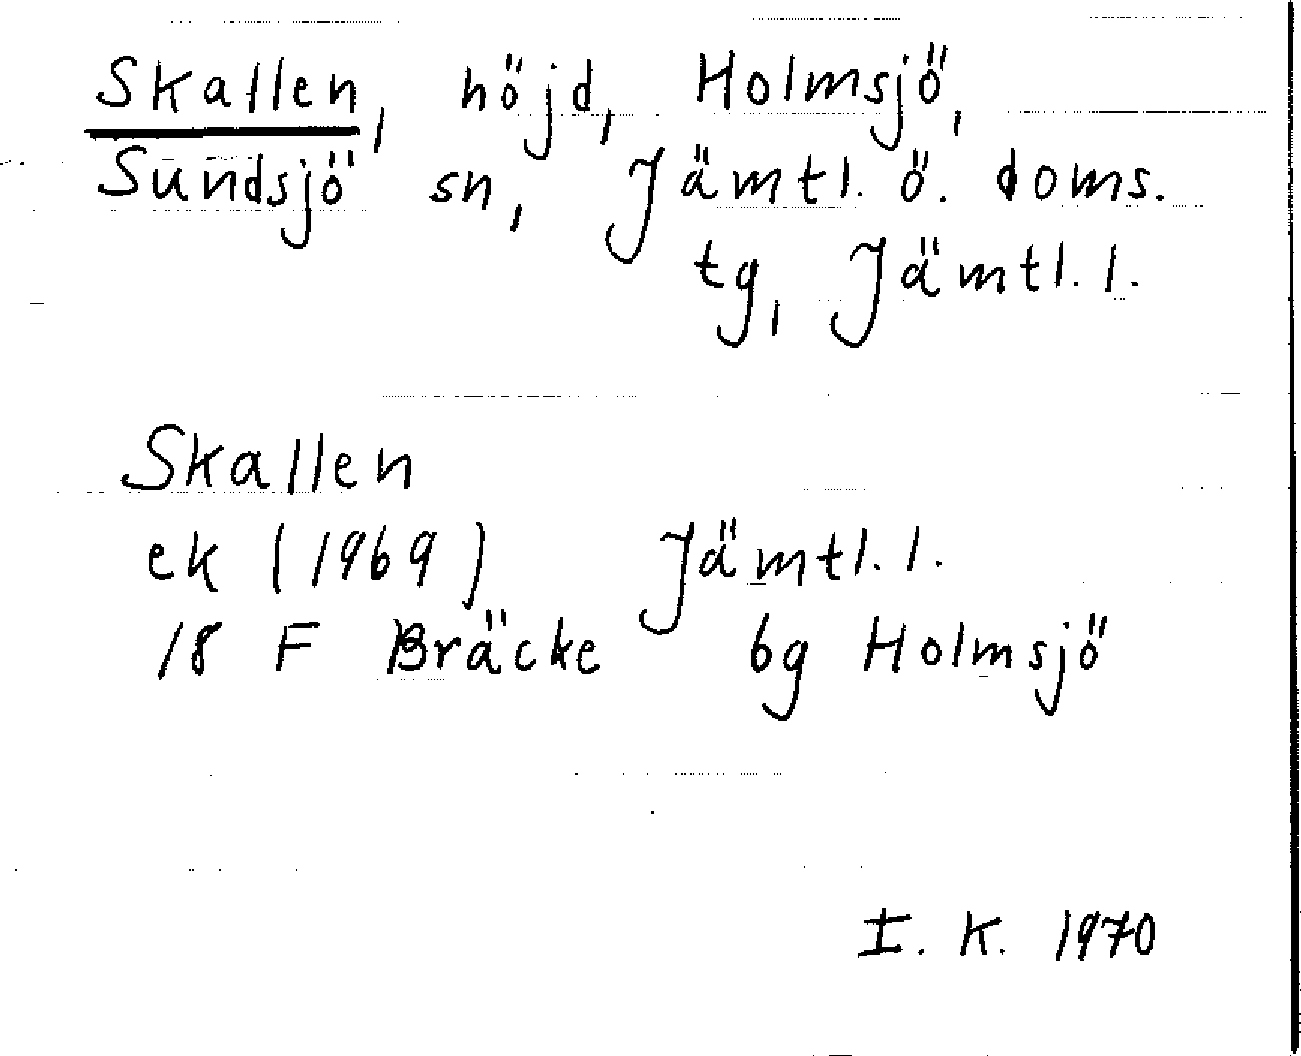 Skallen, höjd, Holmsjö,
Sundsjö sn, Jämtl. ö. doms.
tg, Jämtl. l.
Skallen
ek (1969) Jämtl. l.
18 F Bräcke bg Holmsjö
I. K. 1970